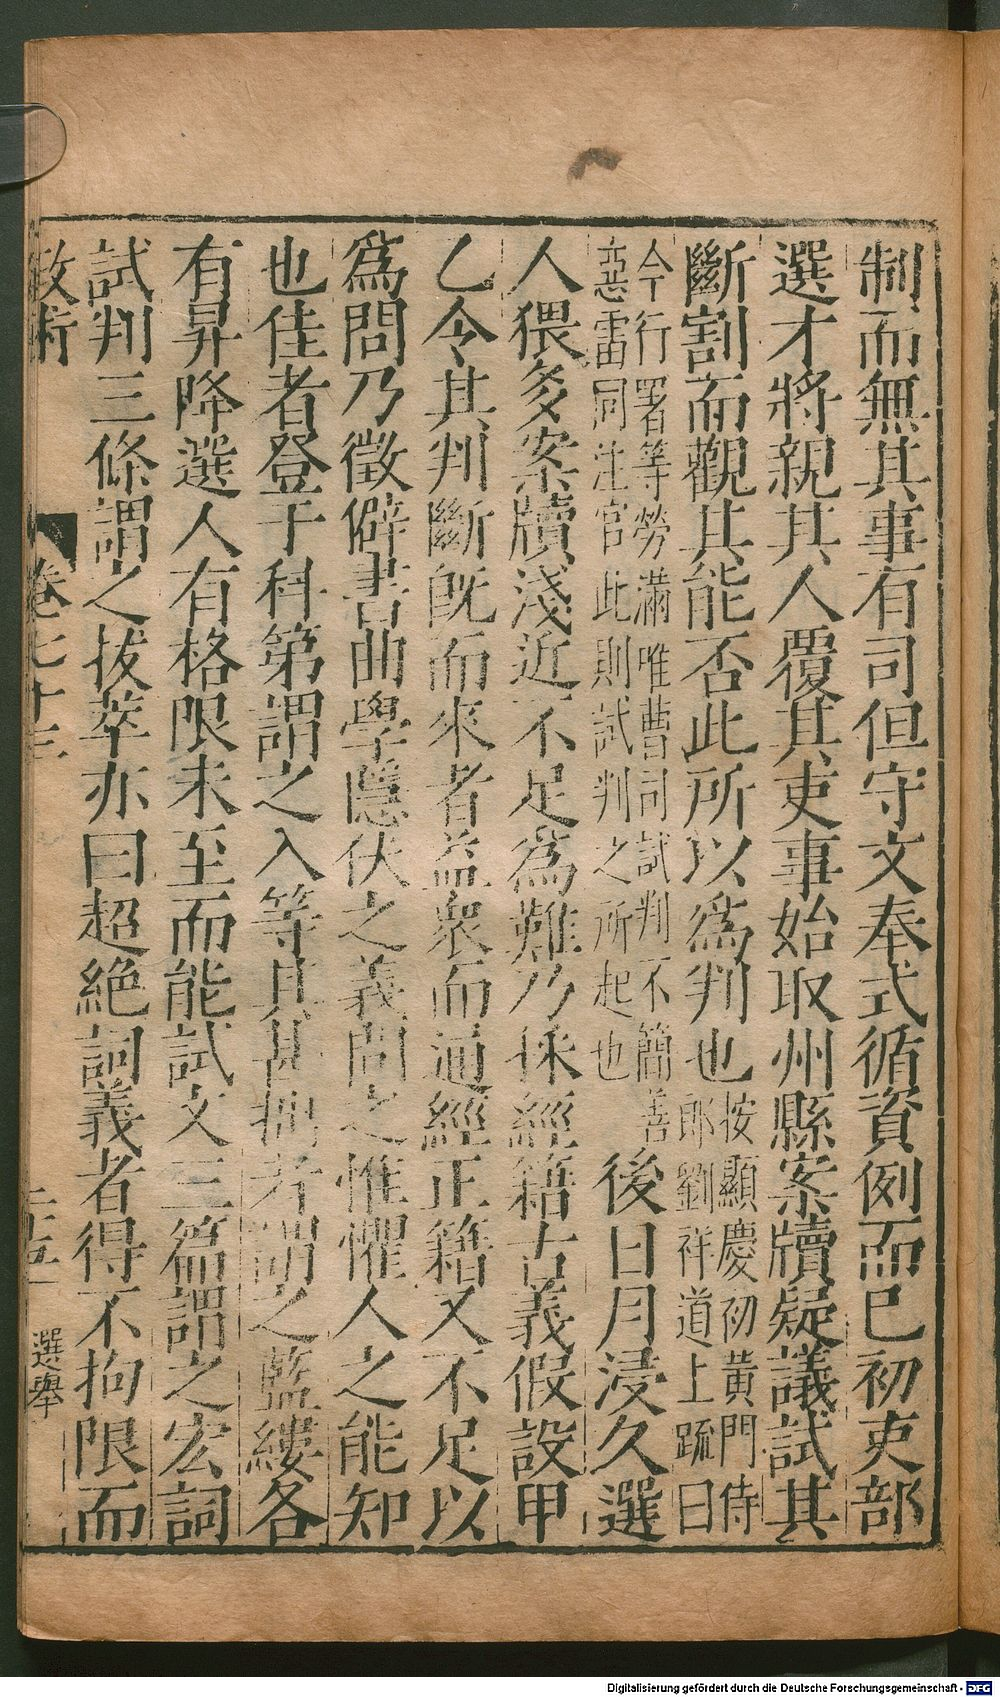 制而無其事有司但守文奉式循資例而已初吏部
選才將親其人覆其吏事始取州縣案牘疑議試其
斷割而觀其能否此所以爲判也按顯慶初黃門侍
郎劉祥道上疏曰
今行署等勞滿唯曹司試判不簡善
惡雷同注官此則試判之所起也後日月浸久選
人猥多案牘淺近不足爲難乃採經籍古義假設甲
乙令其判斷既而來者益衆而通經正籍又不足以
爲問乃徵僻書曲學隱伏之義問之惟懼人之能知
也佳者登于科第謂之入等其甚拙者謂之藍縷各
有昇降選人有格限未至而能試文三篇謂之宏詞
試判三條謂之拔萃亦曰超絶詞義者得不拘限而
卷七十三
選舉
Digitalisierung gefördert durch die Deutsche Forschungsgemeinschaft - DFG